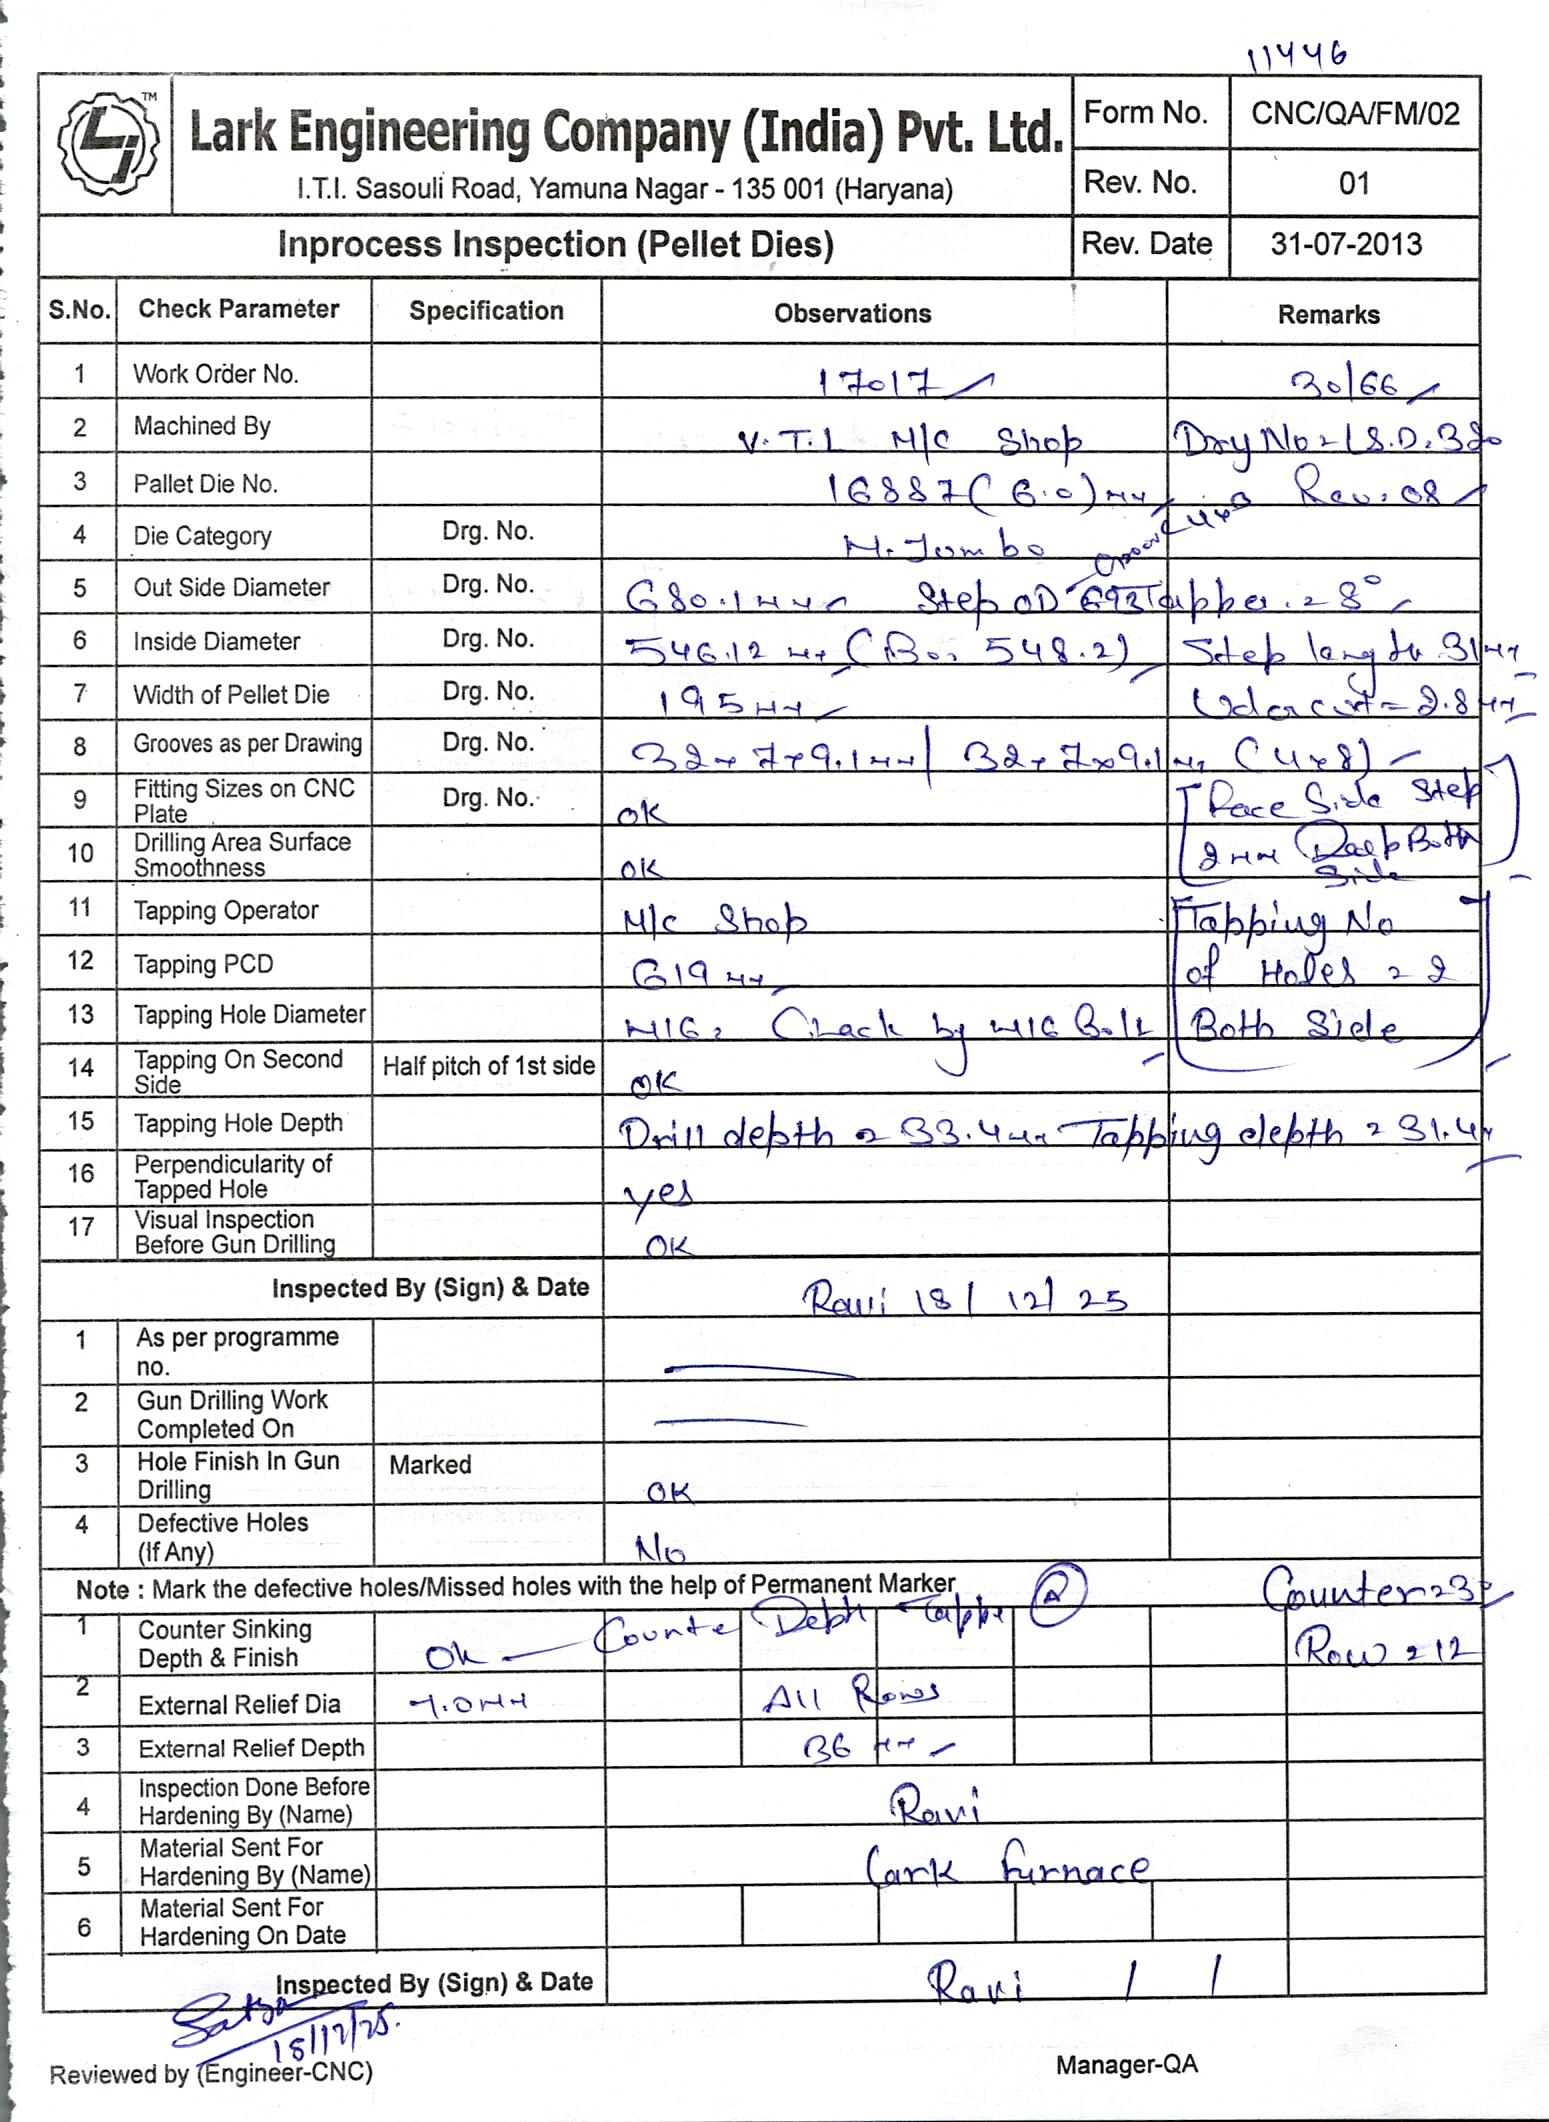 11446
TM
Lark Engineering Company (India) Pvt. Ltd.
I.T.I. Sasouli Road, Yamuna Nagar - 135 001 (Haryana)
Form No. CNC/QA/FM/02
Rev. No. 01
Inprocess Inspection (Pellet Dies) Rev. Date 31-07-2013
S.No. Check Parameter Specification Observations Remarks
1 Work Order No. 17017 30/66
2 Machined By V.T.L M/C Shop
3 Pallet Die No. 16887 (6.0) Rev. 08
4 Die Category Drg. No. M. Jumbo
5 Out Side Diameter Drg. No. 680.1 Step OD Tapper = 8°
6 Inside Diameter Drg. No. 546.12 548.2) Step length 31
7 Width of Pellet Die Drg. No. 195 = 2.8
8 Grooves as per Drawing Drg. No. 32 x 7 x 9.1 | 32 x 7 x 9.1 (4x8)
9 Fitting Sizes on CNC Plate Drg. No. OK Face Side Step
10 Drilling Area Surface Smoothness OK 2 mm Deep Both Side
11 Tapping Operator M/C Shop Tapping No
12 Tapping PCD 619 of Holes = 2
13 Tapping Hole Diameter M16 = Check by M16 Bolt Both Side
14 Tapping On Second Side Half pitch of 1st side OK
15 Tapping Hole Depth Drill depth = 33.4 Tapping depth = 31.4
16 Perpendicularity of Tapped Hole yes
17 Visual Inspection Before Gun Drilling OK
Inspected By (Sign) & Date Ravi 18/12/25
1 As per programme no.
2 Gun Drilling Work Completed On
3 Hole Finish In Gun Drilling Marked OK
4 Defective Holes (If Any) No
Note : Mark the defective holes/Missed holes with the help of Permanent Marker
1 Counter Sinking Depth & Finish Ok Row = 12
2 External Relief Dia 7.0 All Rows
3 External Relief Depth 36
4 Inspection Done Before Hardening By (Name) Ravi
5 Material Sent For Hardening By (Name) Lark Furnace
6 Material Sent For Hardening On Date
Inspected By (Sign) & Date Ravi / /
18/12/25.
Reviewed by (Engineer-CNC) Manager-QA